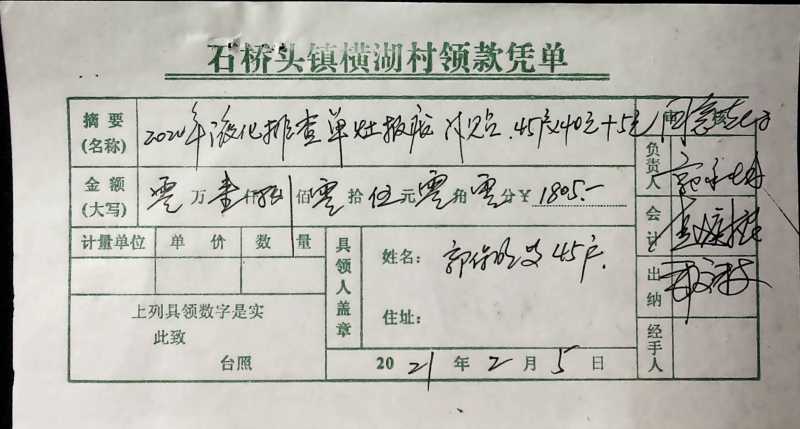 石桥头镇横湖村领款凭单
摘要
(名称)
2020年液化排查单灶报 补贴.45户×40元+5元
金额
(大写)
零万壹仟捌佰零拾伍元零角零分¥1805.-
计量单位 单价 数量
具领人盖章
姓名: 45户
住址:
上列具领数字是实
此致
台照
2021年2月5日
负责人
会计
出纳
经手人